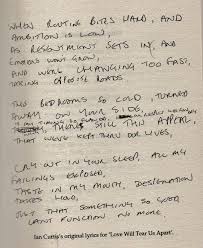 WHEN ROUTINE BITES HARD, AND
AMBITION IS LOW,
AS RESENTMENT SETS IN, AND
EMOTIONS WONT GROW,
AND WERE CHANGING TOO FAST,
TAKING DIFFERENT ROADS
THIS BEDROOMS SO COLD, TURNED
AWAY ON YOUR SIDE,
THERES STILL THIS APPEAL,
THAT WE'VE KEPT THRU OUR LIVES,
CRY OUT IN YOUR SLEEP, ALL MY
FAILINGS EXPOSED,
TASTE IN MY MOUTH, DESPERATION
TAKES HOLD,
JUST THAT SOMETHING SO GOOD
CANT FUNCTION NO MORE,
Ian Curtis's original lyrics for 'Love Will Tear Us Apart'.